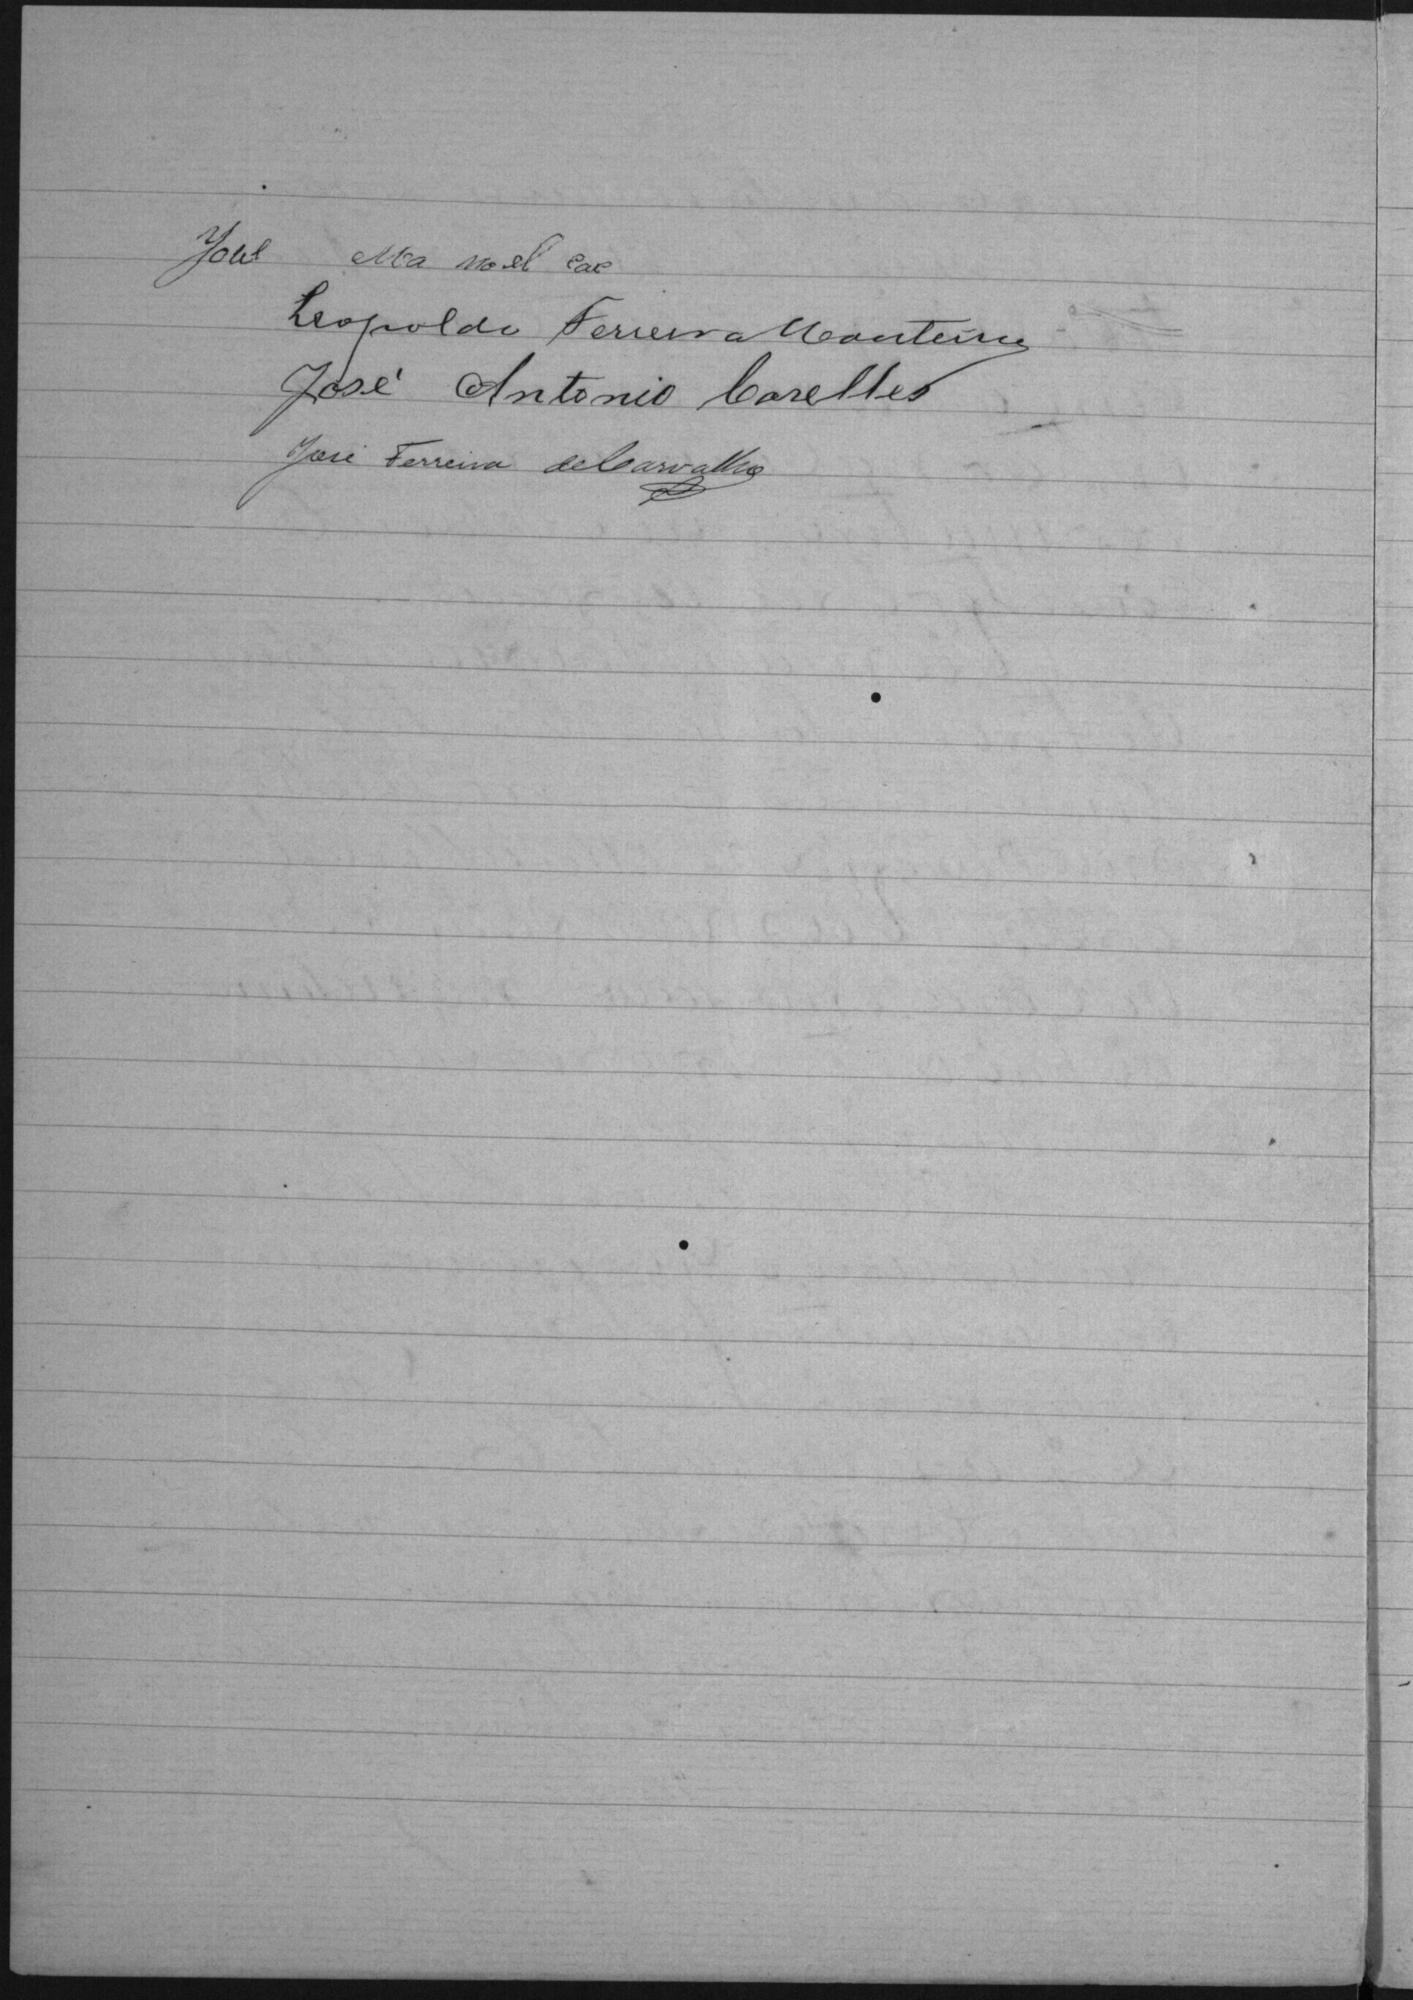 José Manoel
Leopoldo Ferreira Monteiro
José Antonio Corelles
José Ferreira de Carvalho